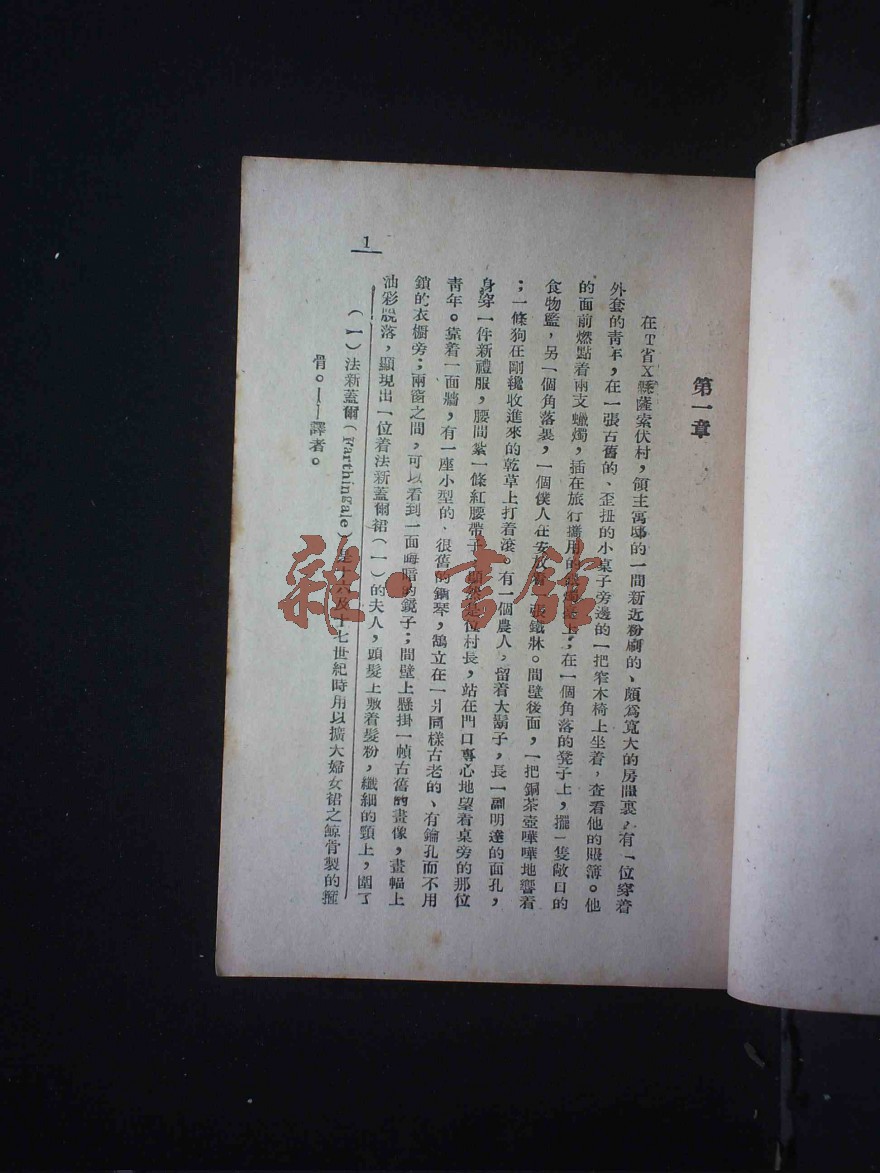 第一章
在T省X縣薩索伏村，領主寓邸的一間新近粉刷的、頗爲寬大的房間裏，有一位穿着
外套的青年，在一張古舊的、歪扭的小桌子旁邊的一把窄木椅上坐着，查看他的賬簿。他
的面前燃點着兩支蠟燭，插在旅行攜用的上；在一個角落的凳子上，擺一隻敞口的
食物籃，另一個角落裏，一個僕人在安放着一張鐵牀。間壁後面，一把銅茶壺嘩嘩地響着
；一條狗在剛纔收進來的乾草上打着滾。有一個農人，留着大鬍子，長一副明達的面孔，
身穿一件新禮服，腰間紮一條紅腰帶子，顯然是位村長，站在門口專心地望着桌旁的那位
青年。靠着一面牆，有一座小型的、很舊的鋼琴，鵠立在一爿同樣古老的、有鑰孔而不用
鎖的衣櫥旁；兩窗之間，可以看到一面晦暗的鏡子；間壁上懸掛一幀古舊的畫像，畫幅上
油彩脫落，顯現出一位着法新蓋爾裙（一）的夫人，頭髮上敷着髮粉，纖細的頸上，圍了
（一）法新蓋爾（Farthingale）是十六及十七世紀時用以擴大婦女裙之鯨骨製的箍
骨。——譯者。
1
雜·書館